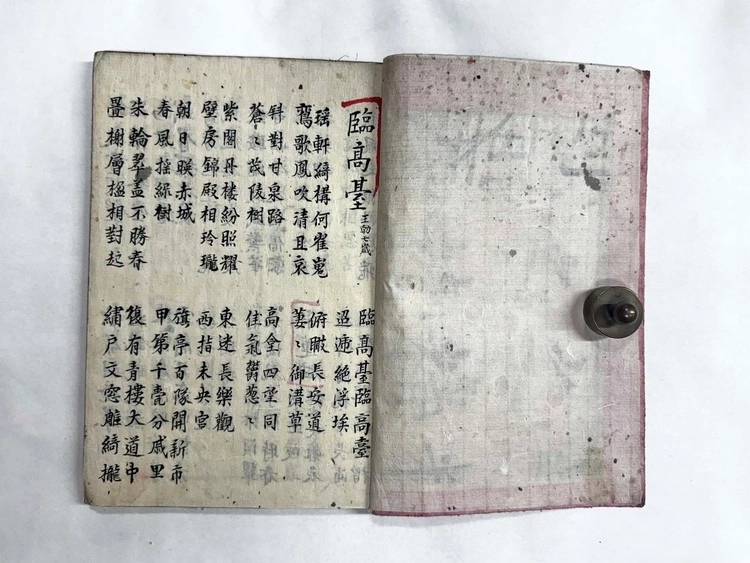 臨髙臺 王勃七歲
臨髙臺臨高臺
迢遞絕浮埃
瑶軒綺構何崔嵬
鸞歌鳳吹清且哀
俯瞰長安道
萋〻御溝草
斜對甘泉路
蒼〻茂陵樹
高臺四望同
佳氣鬱葱〻
紫閣丹楼紛照耀
壁房錦殿相玲瓏
東迷長樂觀
西指未央宮
朝日暎赤城
春風揺綠樹
旗亭百隊開新市
甲第千甍分戚里
朱輪翠盖不勝春
疊榭層楹相對起
復有青樓大道中
繡戶文窓雕綺櫳